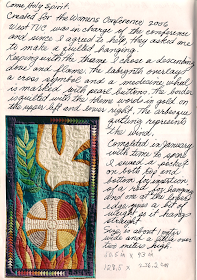 Come, Holy Spirit.
Created for the Women's Conference 2006
West TVC was in charge of the conference
and since I agreed to help, they asked me
to make a quilted hanging.
Keeping with the theme I chose a descending
dove and flame. The labyrinth overlays
a cross symbol and a medicine wheel
is marked with pearl buttons. The border
is quilted with the theme words in gold on
the upper left and lower right. The arabesque
quilting represents
the wind.
Completed in January
with time to spare
I sewed a pocket
on both top and
bottom for insertion
of a rod for hanging
and one at the lower
edge gives a bit of
weight so it hangs
straight.
Size is about 1 meter
wide and a little over
two meters long.
50.5 in x 43 in
128.5 x 76.2 cm